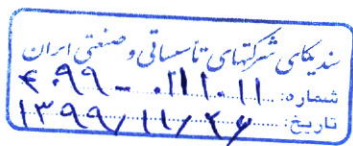 سندیکای شرکتهای تأسیساتی و صنعتی ایران
شماره: ۴۰۹۹ - ۰۱۱۱۰۱۱
تاریخ: ۱۳۹۹/۱۱/۲۶